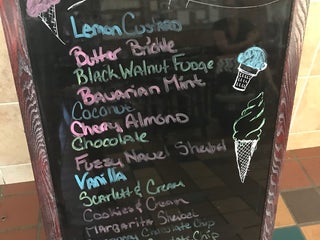 Lemon Custard
Butter Brickle
Black Walnut Fudge
Bavarian Mint
Coconut
Cherry Almond
Chocolate
Fuzzy Navel Sherbet
Vanilla
Scarlett & Cream
Cookies & Cream
Margarita Sherbet
Chocolate Chip
Chocolate Chip